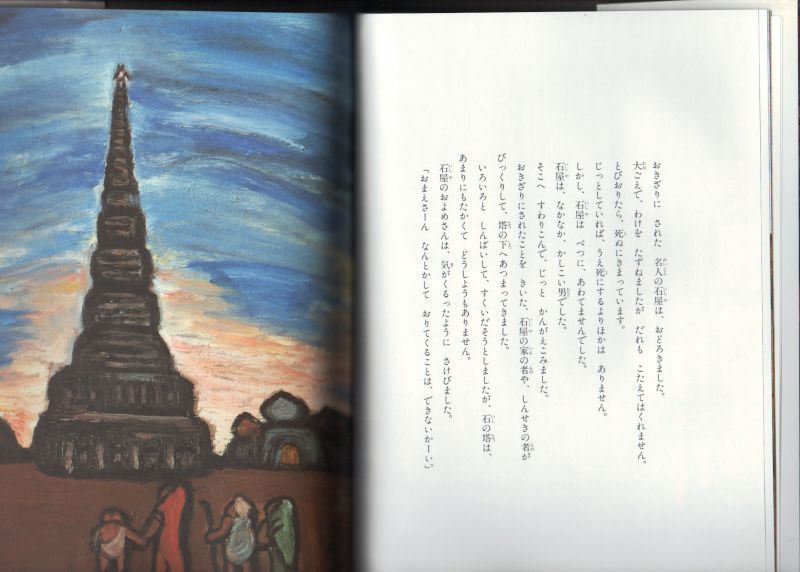 おきざりに された 名人の石屋は、おどろきました。
大ごえで、わけを たずねましたが だれも こたえてはくれません。
とびおりたら、死ぬにきまっています。
じっとしていれば、うえ死にするよりほかは ありません。
しかし、石屋は べつに、あわてませんでした。
石屋は、なかなか、かしこい男でした。
そこへ すわりこんで、じっと かんがえこみました。
おきざりにされたことを きいた、石屋の家の者や、しんせきの者が
びっくりして、塔の下へあつまってきました。
いろいろと しんぱいして、すくいだそうとしましたが、石の塔は、
あまりにもたかくて どうしようもありません。
石屋のおよめさんは、気がくるったように さけびました。
「おまえさーん なんとかして おりてくることは、できないかーい」